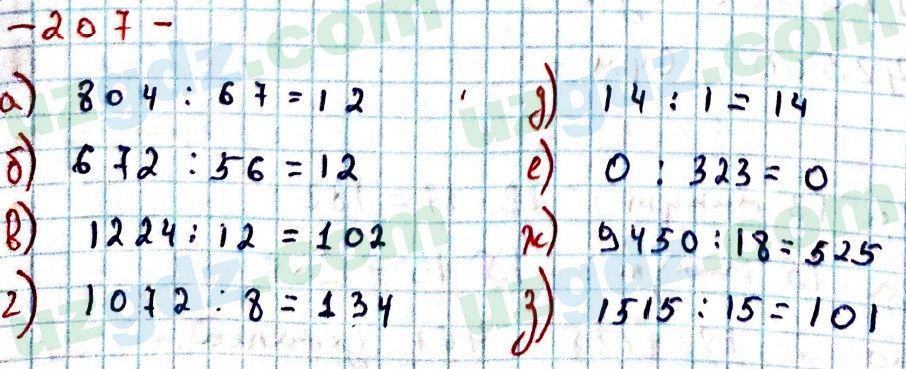 - 207 -
а) 804 : 67 = 12
б) 672 : 56 = 12
в) 1224 : 12 = 102
г) 1072 : 8 = 134
д) 14 : 1 = 14
е) 0 : 323 = 0
ж) 9450 : 18 = 525
з) 1515 : 15 = 101
uzgdz.com